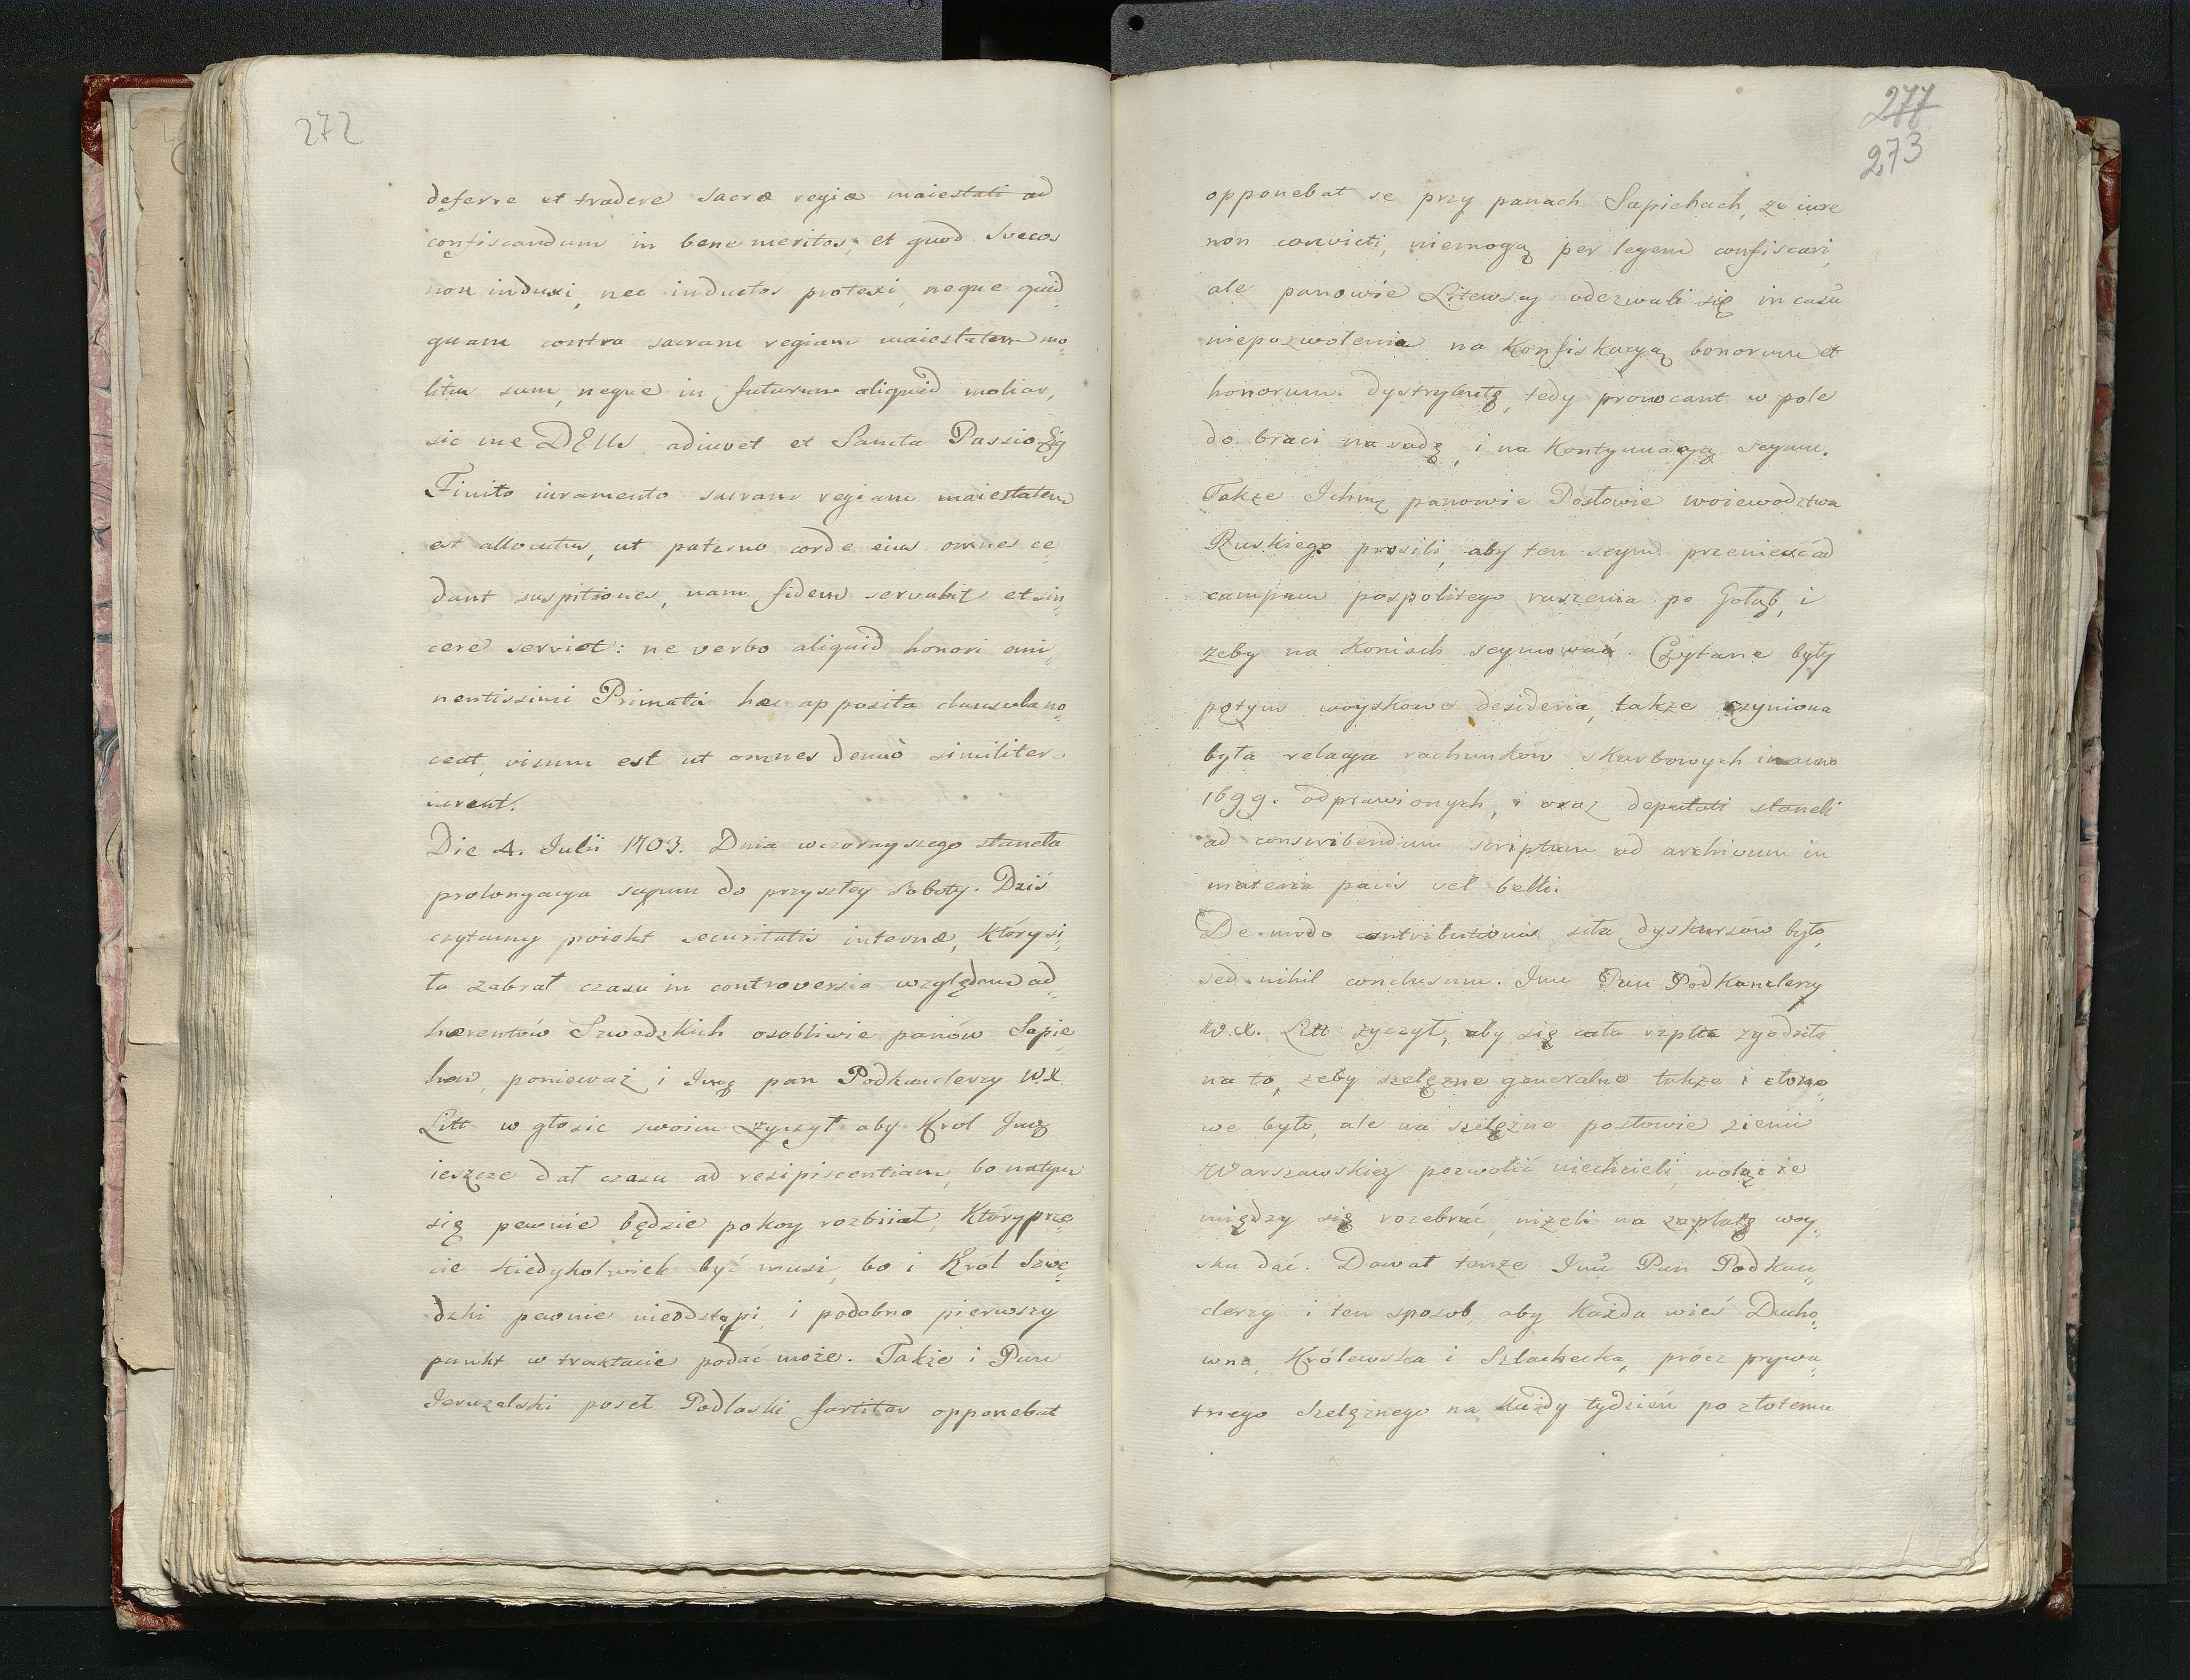 272
deferre et tradere sacræ regiæ maiestati ad
confiscandum in bene meritos, et quod Svecos
non induxi, nec inductos protexi, neque quid„
quam contra sacram regiam maiestatem mo„
litus sum, neque in futurum aliquid moliar,
sic me DEUs adiuvet et Sancta Passio Eig
Finito iuramento sacram regiam maiestatem
est allocutus, ut paterno corde eius omnes ce
dant suspitiones, nam fidem servabit et sin„
cere serviet: ne verbo aliquid honori emi„
nentissimi Primatis hæc apposita clausula no„
ceat, visum est ut omnes denuò similiter
iurent.
Die 4. Julii 1703. Dnia wczorayszego stanęła
prolongacya seymu do przyszłey Soboty. Dziś
czytamy proiekt securitatis internæ, który si„
ła zabrał czasu in controversia względem ad„
hærentów Szwedzkich osobliwie panów Sapie„
how, ponieważ i Jmę pan Podkanclerzy W.X.
Litt w głosie swoim życzył aby Krol Jmę
ieszcze dał czasu ad resipiscentiam, bo natym
się pewnie będzie pokoy rozbiiał, który prze„
cie kiedykolwiek być musi, bo i Król Szwe„
dzki pewnie nieodstąpi, i podobno pierwszy
punkt w traktacie podać może. Także i Pan
Jeruzalski poseł Podlaski fortiter opponebat
277
273
opponebat se przy panach Sapiehach, że iure
non convicti, niemogą per legem confiscari,
ale panowie Litewscy odezwali się in casu
niepozwolenia na konfiskacyą bonorum et
honorum dystrybutę, tedy provocant w pole
do braci na radę, i na kontynuacyą seymu.
Także Ichmę panowie Posłowie woiewodztwa
Ruskiego prosili, aby ten seym przenieść ad
campum pospolitego ruszenia po Gołąb, i
żeby na koniach seymować. Czytane były
potym woyskowe desideria, także czyniona
była relacya rachunków skarbowych in anno
1699. odprawionych, i oraz deputati staneli
ad conscribendum scriptum ad archivum in
materia pacis vel belli.
De modo contributionis siła dyskursów było,
sed nihil conclusum. Jmć Pan Podkanclerzy
W.X. Litt życzył, aby się cała rzplta zgodziła
na to, żeby szelężne generalne także i czopo„
we było, ale na szelężne posłowie ziemi
Warszawskiey pozwolić niechcieli, woląc ie
między się rozebrać, niżeli na zapłatę woy„
sku dać. Dawał tenże Jmć Pan Podkan„
clerzy i ten sposob, aby każda wieś Ducho„
wna, Królewska i Szlachecka, prócz prywa„
tnego szelężnego na każdy tydzień po złotemu